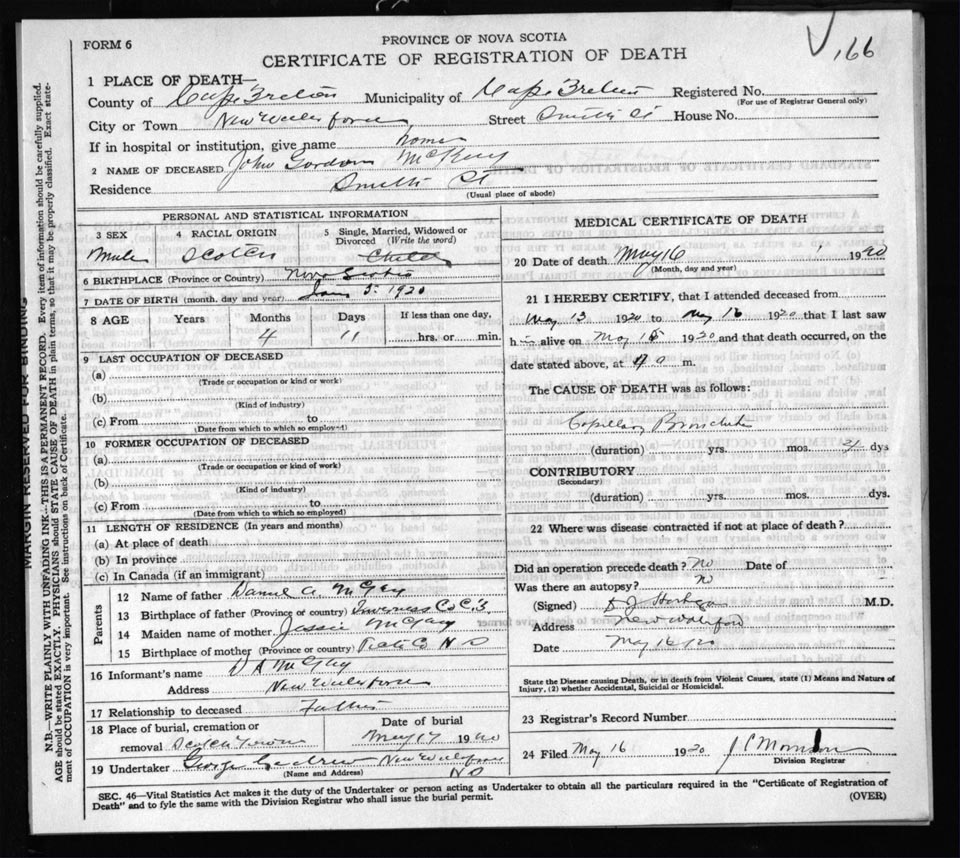 FORM 6
PROVINCE OF NOVA SCOTIA
166
CERTIFICATE OF REGISTRATION OF DEATH
1 PLACE OF DEATH—
County of Cape Breton Municipality of Cape Breton Registered No.
(For use of Registrar General only)
City or Town New Waterford Street Smith St House No.
If in hospital or institution, give name home
2 NAME OF DECEASED John Gordon
Residence Smith St
(Usual place of abode)
PERSONAL AND STATISTICAL INFORMATION
3 SEX 4 RACIAL ORIGIN 5 Single, Married, Widowed or Divorced (Write the word)
Male Scotch Child
6 BIRTHPLACE (Province or Country) Nova Scotia
7 DATE OF BIRTH (month, day and year) Jan 5. 1920
8 AGE Years Months Days If less than one day,
4 11 hrs. or min.
9 LAST OCCUPATION OF DECEASED
(a)
(Trade or occupation or kind or work)
(b)
(Kind of industry)
(c) From to
(Date from which to which so employed)
10 FORMER OCCUPATION OF DECEASED
(a)
(Trade or occupation or kind of work)
(b)
(Kind of industry)
(c) From to
(Date from which to which so employed)
11 LENGTH OF RESIDENCE (In years and months)
(a) At place of death
(b) In province
(c) In Canada (if an immigrant)
Parents
12 Name of father Daniel A.
13 Birthplace of father (Province or country) Inverness Co
14 Maiden name of mother Jessie
15 Birthplace of mother (Province or country) N S
16 Informant's name D A
Address New Waterford
17 Relationship to deceased Father
18 Place of burial, cremation or removal Date of burial
May 17 1920
19 Undertaker George New Waterford
(Name and Address) N S
MEDICAL CERTIFICATE OF DEATH
20 Date of death May 16 1920
(Month, day and year)
21 I HEREBY CERTIFY, that I attended deceased from
May 13 1920 to May 16 1920 that I last saw
h alive on May 1920 and that death occurred, on the
date stated above, at m.
The CAUSE OF DEATH was as follows:
Capillary Bronchitis
(duration) yrs. mos. dys
CONTRIBUTORY
(Secondary)
(duration) yrs. mos. dys.
22 Where was disease contracted if not at place of death?
Did an operation precede death? No Date of
Was there an autopsy? no
(Signed) M.D.
Address New Waterford
Date May 16/20
State the Disease causing Death, or in death from Violent Causes, state (1) Means and Nature of
Injury, (2) whether Accidental, Suicidal or Homicidal.
23 Registrar's Record Number
24 Filed May 16 1920
Division Registrar
SEC. 46—Vital Statistics Act makes it the duty of the Undertaker or person acting as Undertaker to obtain all the particulars required in the "Certificate of Registration of
Death" and to fyle the same with the Division Registrar who shall issue the burial permit.
(OVER)
MARGIN RESERVED FOR BINDING
N.B.—WRITE PLAINLY WITH UNFADING INK. THIS IS A PERMANENT RECORD. Every item of information should be carefully supplied.
AGE should be stated EXACTLY. PHYSICIANS should STATE CAUSE OF DEATH in plain terms, so that it may be properly classified. Exact statement of OCCUPATION is very important. See instructions on back of Certificate.